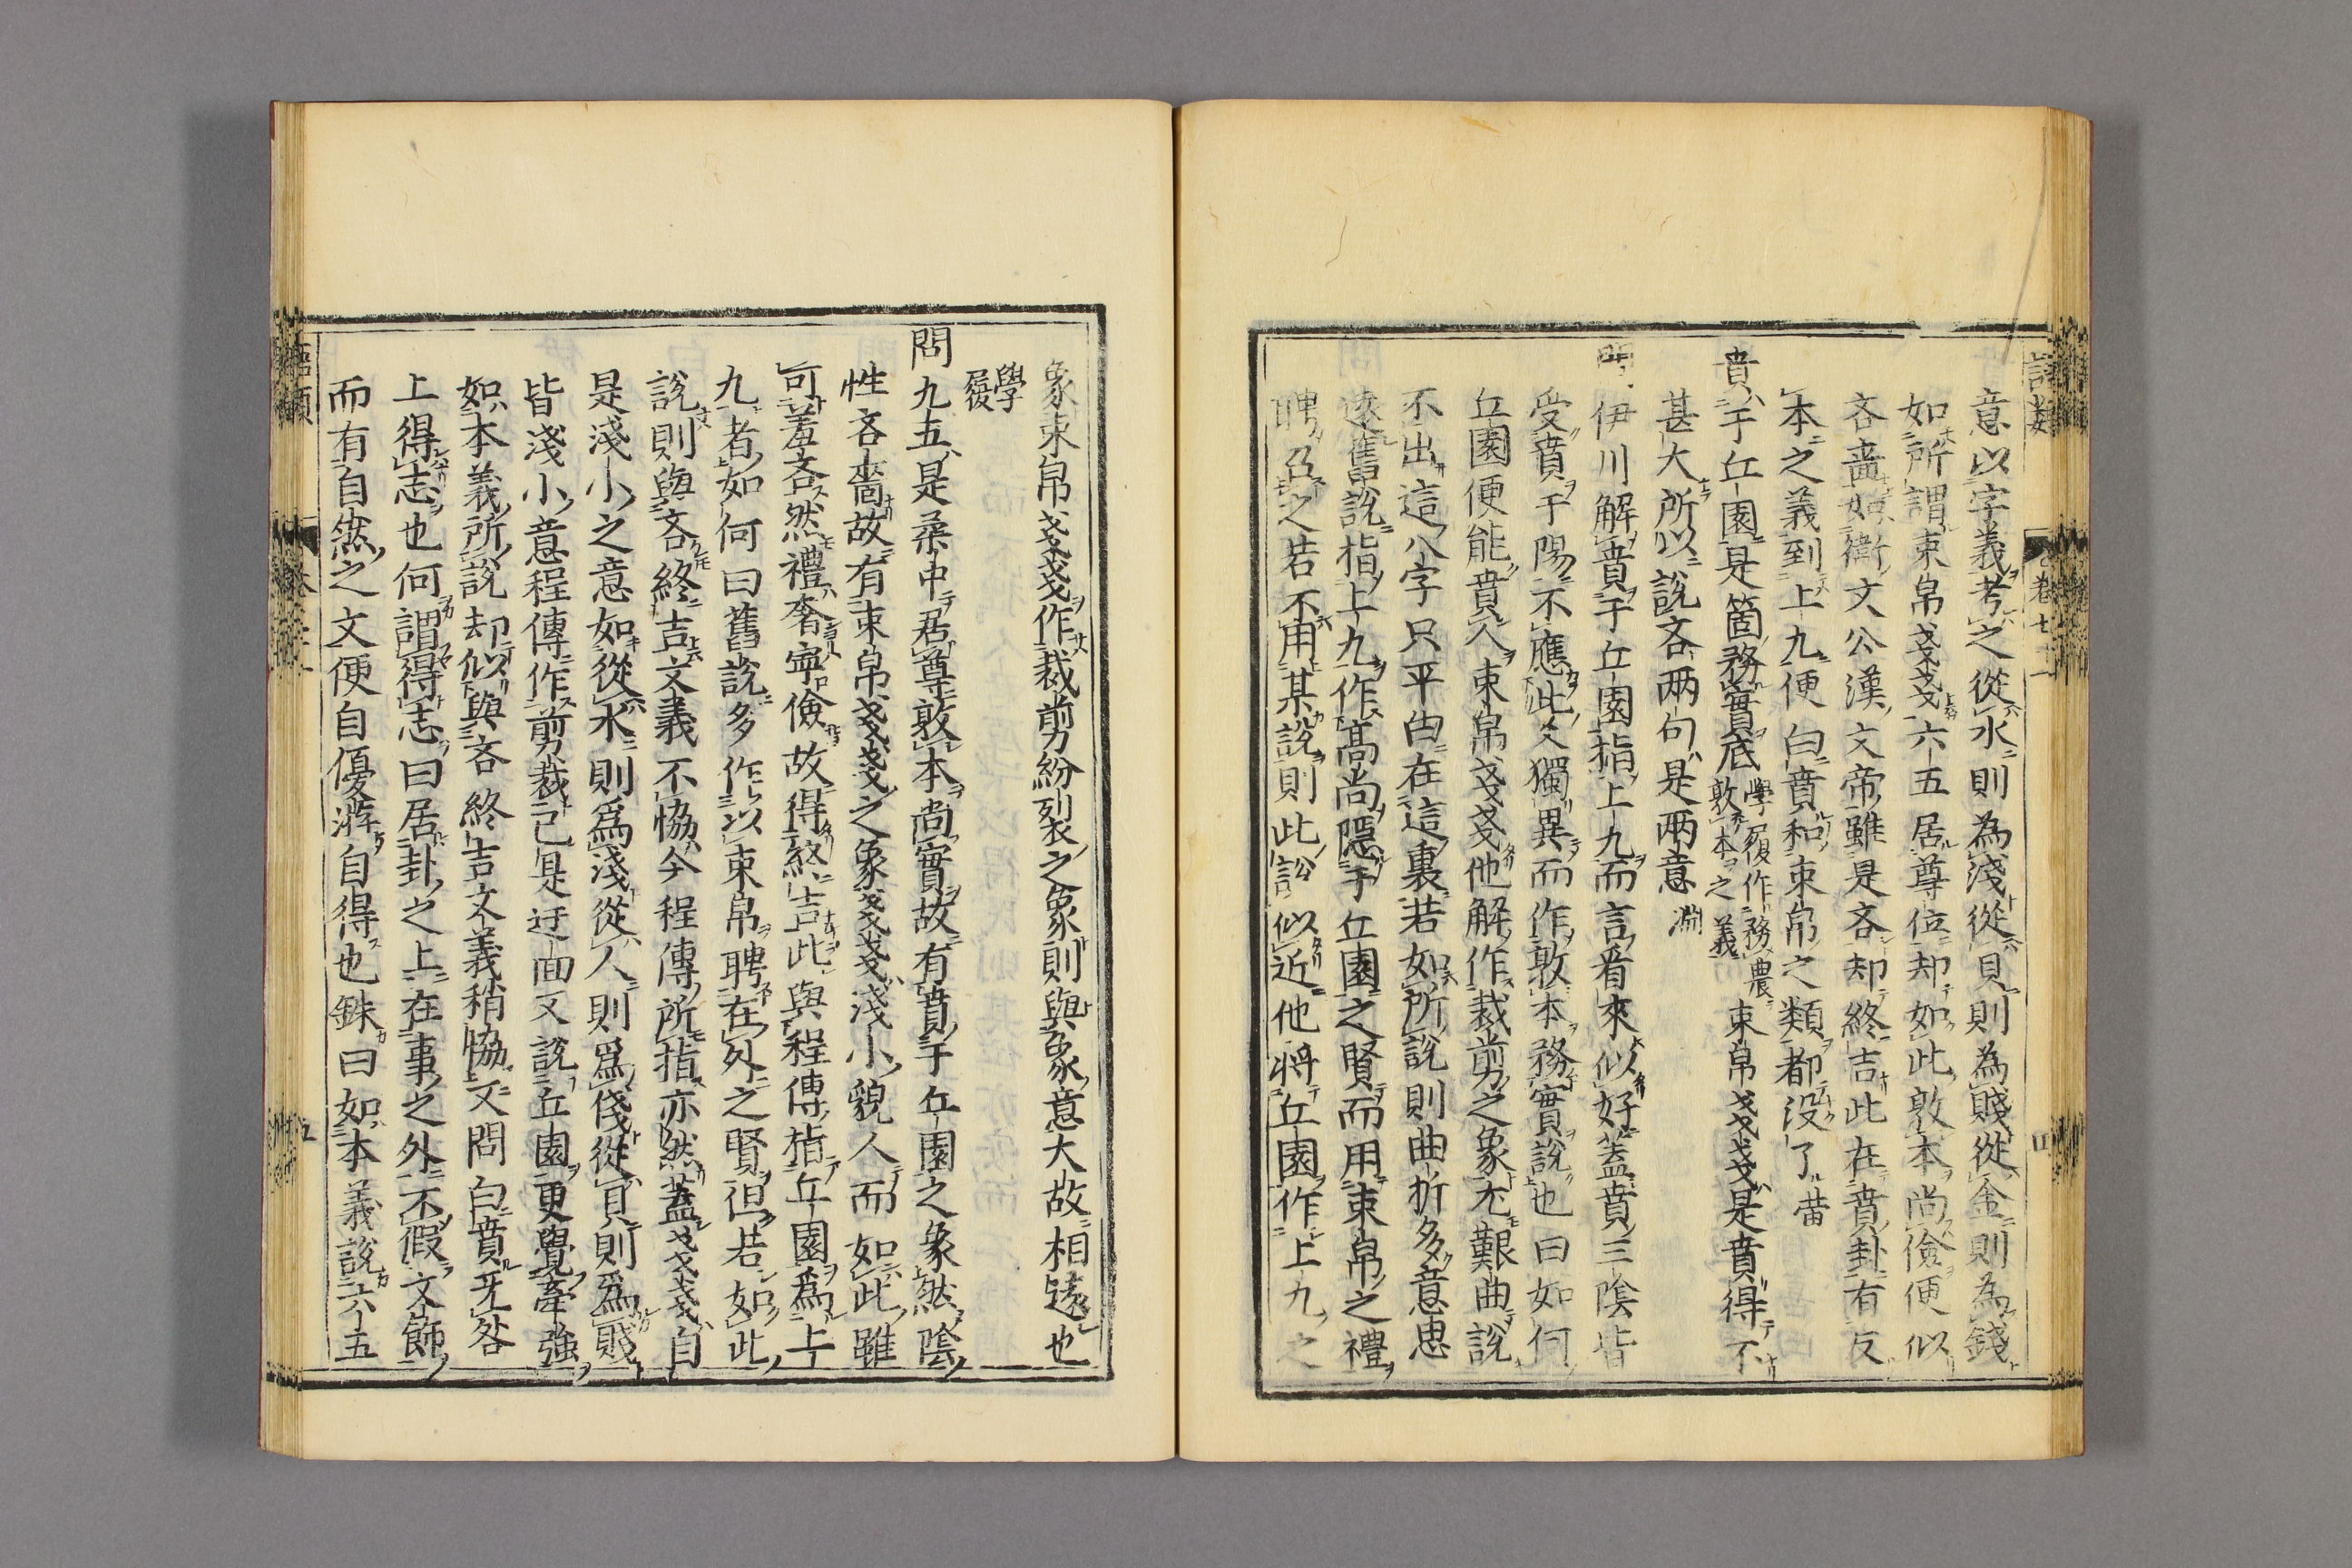 意以字義考之從水則為淺從貝則為賤從金則為錢
如所謂束帛戔戔六五居尊位却如此敦本尚儉便似
吝嗇如衛文公漢文帝雖是吝却終吉此在賁卦有反
本之義到上九便白賁和束帛之類都没了㽪
賁于丘園是箇務實底學履作務農敦本之義束帛戔戔是賁得不
甚大所以說吝兩句是兩意淵
問伊川解賁于丘園指上九而言看來似好蓋賁三陰皆
受賁于陽不應此又獨異而作敦本務實說也曰如何
丘園便能賁人束帛戔戔他解作裁剪之象尤艱曲說
不出這八字只平白在這裏若如所說則曲折多意思
遠舊說指上九作高尚隱于丘園之賢而用束帛之禮
聘召之若不用某說則此說似近他將丘園作上九之
象束帛戔戔作裁剪紛裂之象則與象意大故相遠也
學履
問九五是柔中居尊敦本尚實故有賁于丘園之象然陰
性吝嗇故有束帛戔戔之象戔戔淺小貌人而如此雖
可羞吝然禮奢寧儉故得終吉此與程傳指丘園為上
九者如何曰舊說多作以束帛聘在外之賢但若如此
說則與吝終吉文義不協今程傳所指亦然蓋戔戔自
是淺小之意如從水則爲淺從人則爲俴從貝則爲賤
皆淺小意程傳作剪裁已是迂面又說丘園更覺牽強
如本義所說却似與吝終吉文義稍協又問白賁无咎
上得志也何謂得志曰居卦之上在事之外不假文飾
而有自然之文便自優游自得也銖曰如本義說六五